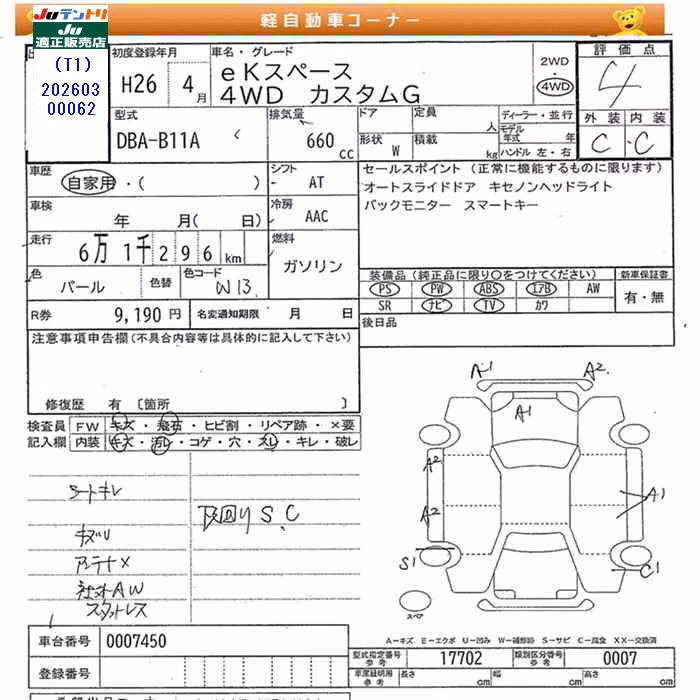 Juテントリ
適正販売店
(T1)
202603
00062
軽自動車コーナー
初度登録年月
H26 4月
車名・グレード
eKスペース
4WD カスタムG
2WD・4WD
評価点
4
外装 内装
C・C
型式
DBA-B11A
排気量
660cc
ドア
形状 W
定員 人
積載 kg
ディーラー・並行
モデル年式 年
ハンドル 左・右
車歴
自家用・( )
シフト
AT
セールスポイント (正常に機能するものに限ります)
オートスライドドア キセノンヘッドライト
バックモニター スマートキー
車検
年 月( 日)
冷房
AAC
走行
6万1千296km
燃料
ガソリン
色
パール
色替
色コード
W13
装備品(純正品に限り○をつけてください)
新車保証書
PS PW ABS エアB AW
SR ナビ TV カワ
有・無
R券 9,190円
名変通知期限 月 日
後日品
注意事項申告欄(不具合内容等は具体的に記入して下さい)
修復歴 有 〔箇所 〕
検査員記入欄
FW キズ・飛石・ヒビ割・リペア跡・×要
内装 キズ・汚レ・コゲ・穴・スレ・キレ・破レ
シートキレ
キズU
アンテナ×
社外AW
スタットレス
下回りS.C
A1 A2
A1
A2
A2
A1
S1
C1
スペア
A-キズ E-エクボ U-凹み W-補修跡 S-サビ C-腐食 XX-交換済
車台番号 0007450
登録番号
型式指定番号 参考 17702
類別区分番号 参考 0007
車庫証明用 参考
長さ cm
幅 cm
高さ cm